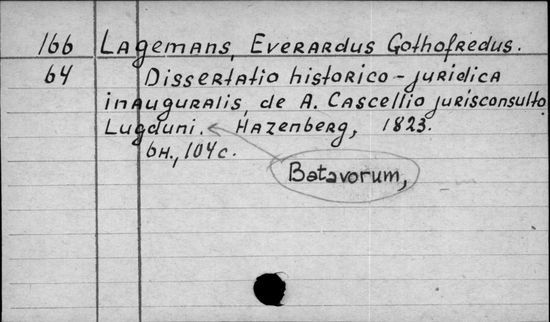 166 Lagemans, Everardus Gothofredus.
64 Dissertatio historico-juridica
inauguralis, de A. Cascellio jurisconsulto
Lugduni. Hazenberg, 1823.
6н., 104 с.
Batavorum,